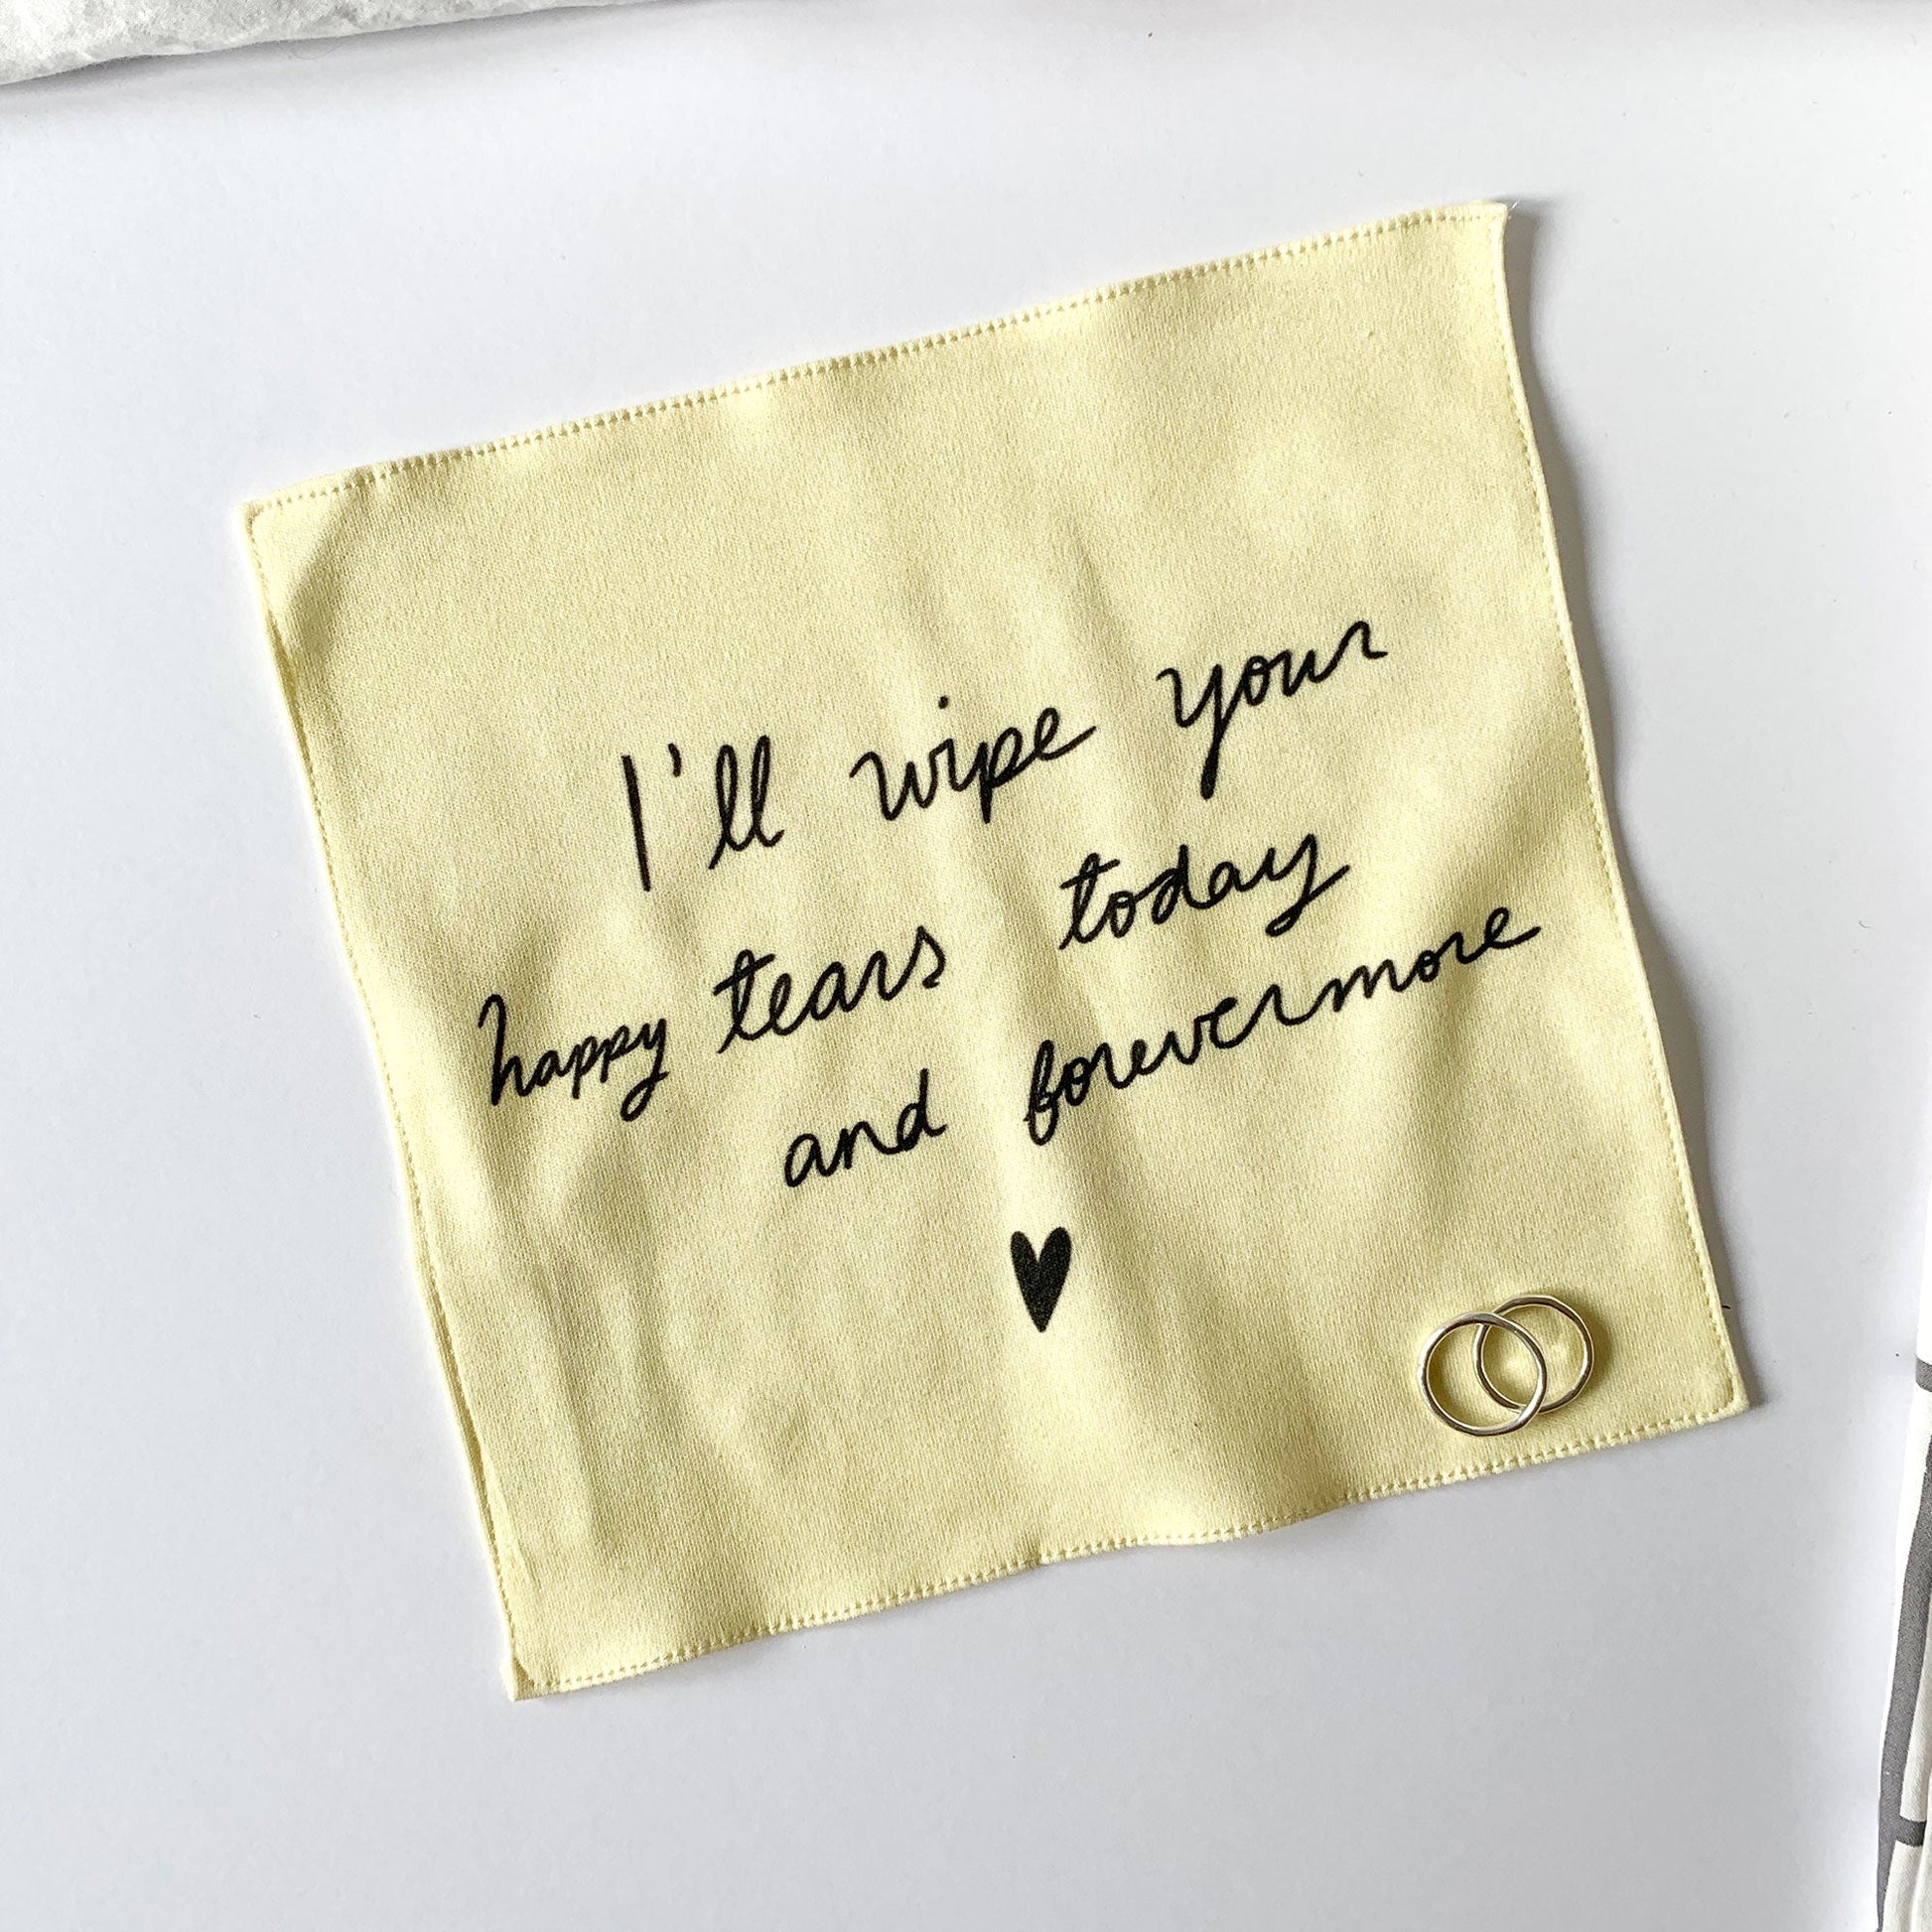 I'll wipe your
happy tears today
and forevermore